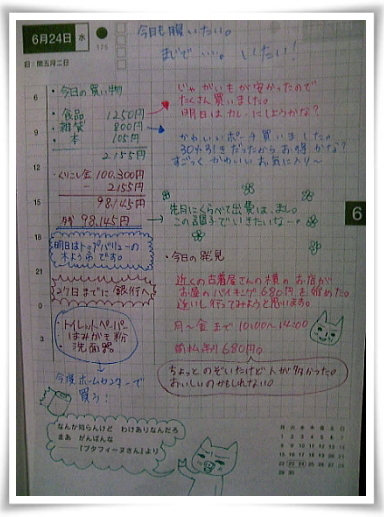 6月24日 水
175
今日も腰いたい。
まじで……。いたい!
日:閏五月二日
・今日の買い物
食品 1250円
雑貨 800円
本 105円
2155円
くりこし金 100,300円
- 2155円
98,145円
残 98,145円
じゃがいもが安かったので
たくさん買いました。
明日はカレーにしようかな?
かわいいポーチ買いました。
30%引きだったからお得かな?
すごっくかわいいお気に入り~
先月にくらべて出費は…まし。
この調子でいきたいな~。
明日はトップバリューの
木ようべつです。
27日までに銀行へ
トイレットペーパー
はみがき粉
洗面器
今度ホームセンターで
買う!
・今日の発見
近くの古着屋さんの横のお店が
お昼のバイキング680円を始めた。
月~金まで 10:00~14:00
前払制680円。
ちょっとのぞいたけど人が多かった。
おいしいのかもしれない。
なんか知らんけど わけありなんだろ
まあ がんばんな
──『ブタフィーヌさん』より
6
9
12
15
18
21
0
3
6